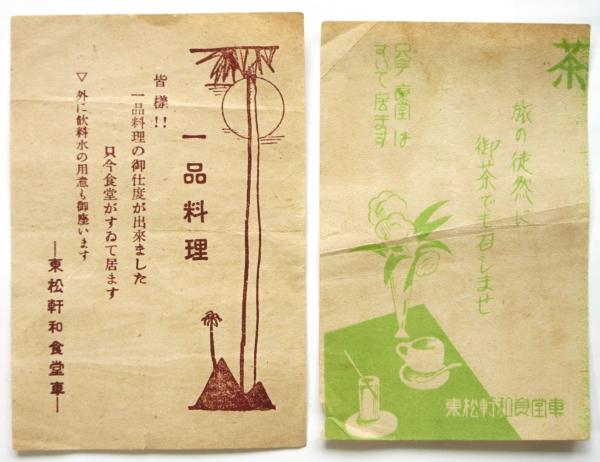 一品料理
皆様!!
一品料理の御仕度が出來ました
只今食堂がすゐて居ます
▽外に飲料水の用意も御座います
―東松軒和食堂車―
茶
旅の徒然に
御茶でも召しませ
只今食堂は
すいて居ます
東松軒和食堂車